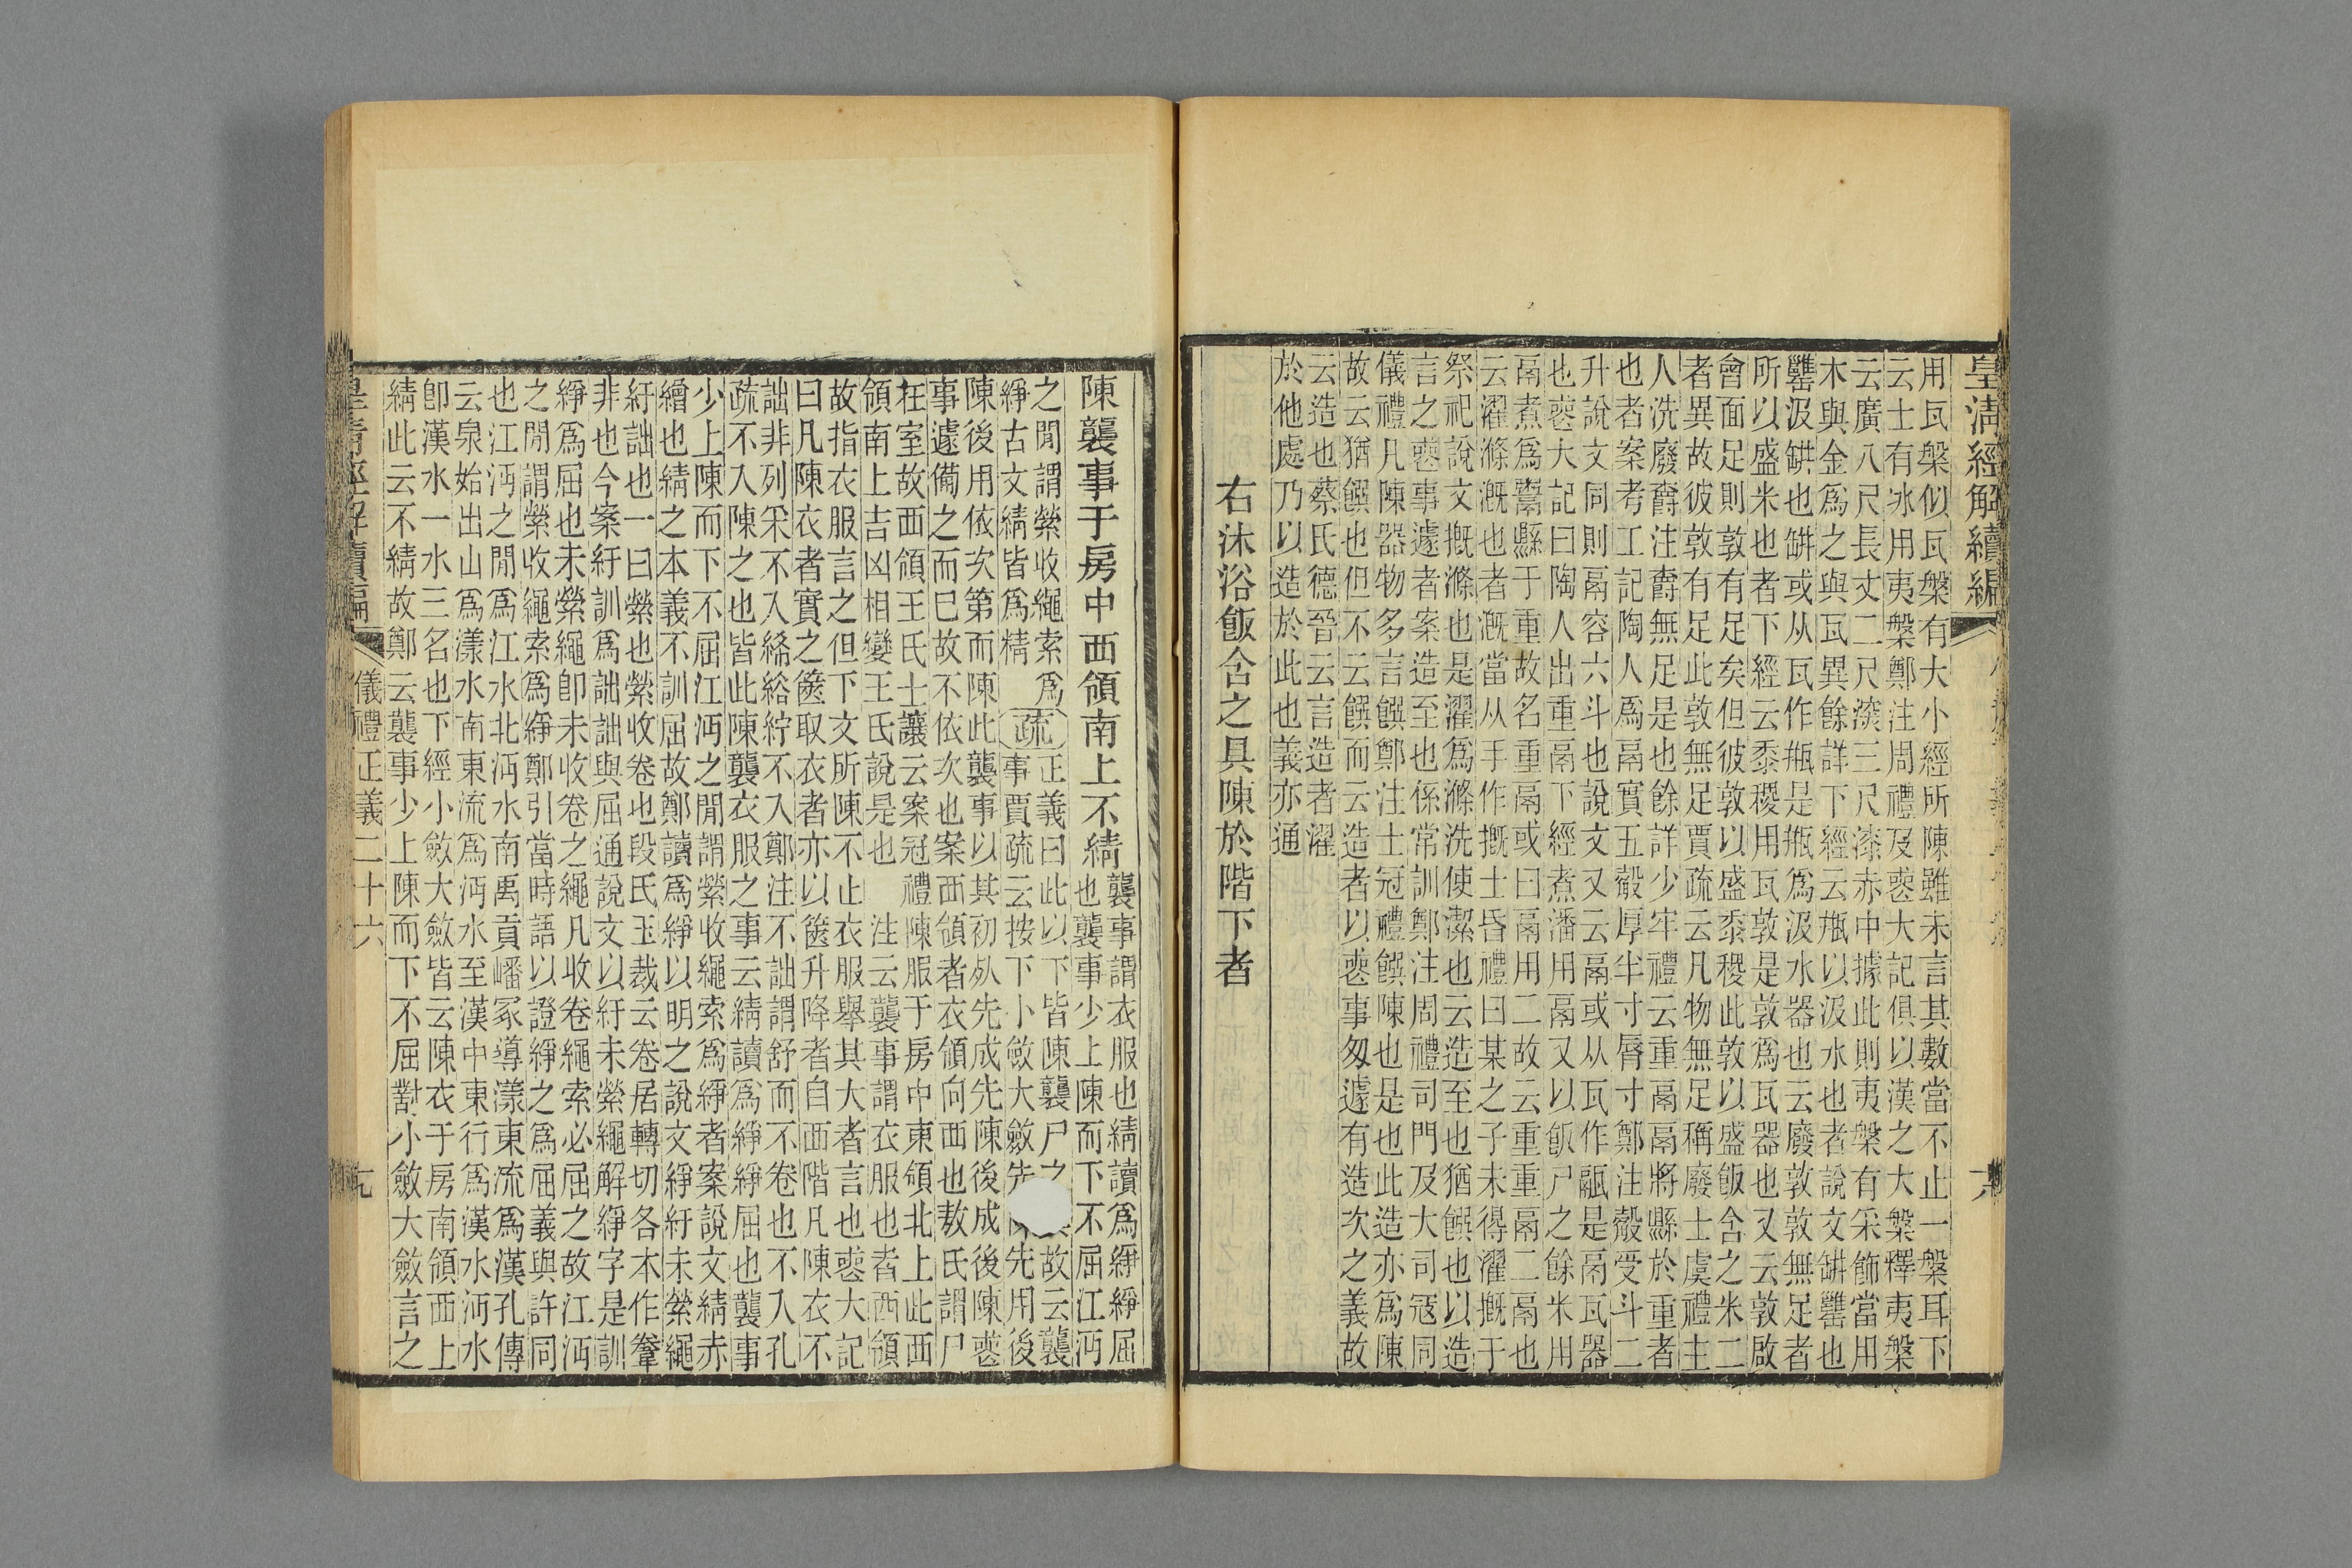 皇淸經解續編
用瓦槃似瓦槃有大小經所陳雖未言其數當不止一槃耳下
云士有冰用夷槃鄭注周禮及喪大記俱以漢之大槃釋夷槃
云廣八尺長丈二尺深三尺漆赤中據此則夷槃有采飾當用
木與金爲之與瓦異餘詳下經云甁以汲水也者說文缾罋也
罋汲缾也缾或从瓦作甁是甁爲汲水器也云廢敦敦無足者
所以盛米也者下經云黍稷用瓦敦是敦爲瓦器也又云敦啟
會面足則敦有足矣但彼敦以盛黍稷此敦以盛飯含之米二
者異故彼敦有足此敦無足賈疏云凡物無足稱廢士虞禮主
人洗廢爵注爵無足是也餘詳少牢禮云重鬲鬲將縣於重者
也者案考工記陶人爲鬲實五觳厚半寸脣寸鄭注觳受斗二
升說文同則鬲容六斗也說文又云鬲或从瓦作䰛是鬲瓦器
也喪大記曰陶人出重鬲下經煮潘用鬲又以飯尸之餘米用
鬲煮爲鬻縣于重故名重鬲或曰鬲用二故云重重鬲二鬲也
云濯滌漑也者漑當从手作摡士昏禮曰某之子未得濯摡于
祭祀說文摡滌也是濯爲滌洗使潔也云造至也猶饌也以造
言之喪事遽者案造至也係常訓鄭注周禮司門及大司寇同
儀禮凡陳器物多言饌鄭注士冠禮饌陳也是也此造亦爲陳
故云猶饌也但不云饌而云造者以喪事匆遽有造次之義故
云造也蔡氏德晉云言造者濯
於他處乃以造於此也義亦通
右沐浴飯含之具陳於階下者
陳襲事于房中西領南上不綪
襲事謂衣服也綪讀爲絣絣屈
也襲事少上陳而下不屈江沔
之閒謂縈收繩索爲
絣古文綪皆爲精
疏
正義曰此以下皆陳襲尸之故云襲
事賈疏云按下小斂大斂先先用後
陳後用依次第而陳此襲事以其初死先成先陳後成後陳喪
事遽備之而已故不依次也案西領者衣領向西也敖氏謂尸
在室故西領王氏士讓云案冠禮陳服于房中東領北上此西
領南上吉凶相變王氏說是也 注云襲事謂衣服也者西領
故指衣服言之但下文所陳不止衣服舉其大者言也喪大記
曰凡陳衣者實之篋取衣者亦以篋升降者自西階凡陳衣不
詘非列采不入絺綌紵不入鄭注不詘謂舒而不卷也不入孔
疏不入陳之也皆此陳襲衣服之事云綪讀爲絣絣屈也襲事
少上陳而下不屈江沔之閒謂縈收繩索爲絣者案說文綪赤
繒也綪之本義不訓屈故鄭讀爲絣以明之說文絣紆未縈繩
紆詘也一曰縈也縈收卷也段氏玉裁云卷居轉切各本作韏
非也今案紆訓爲詘詘與屈通說文以紆未縈繩解絣字是訓
絣爲屈也未縈繩卽未收卷之繩凡收卷繩索必屈之故江沔
之閒謂縈收繩索爲絣鄭引當時語以證絣之爲屈義與許同
也江沔之閒爲江水北沔水南禹貢嶓冢導漾東流爲漢孔傳
云泉始出山爲漾水南東流爲沔水至漢中東行爲漢水沔水
卽漢水一水三名也下經小斂大斂皆云陳衣于房南領西上
綪此云不綪故鄭云襲事少上陳而下不屈對小斂大斂言之
皇淸經解續編
儀禮正義二十六